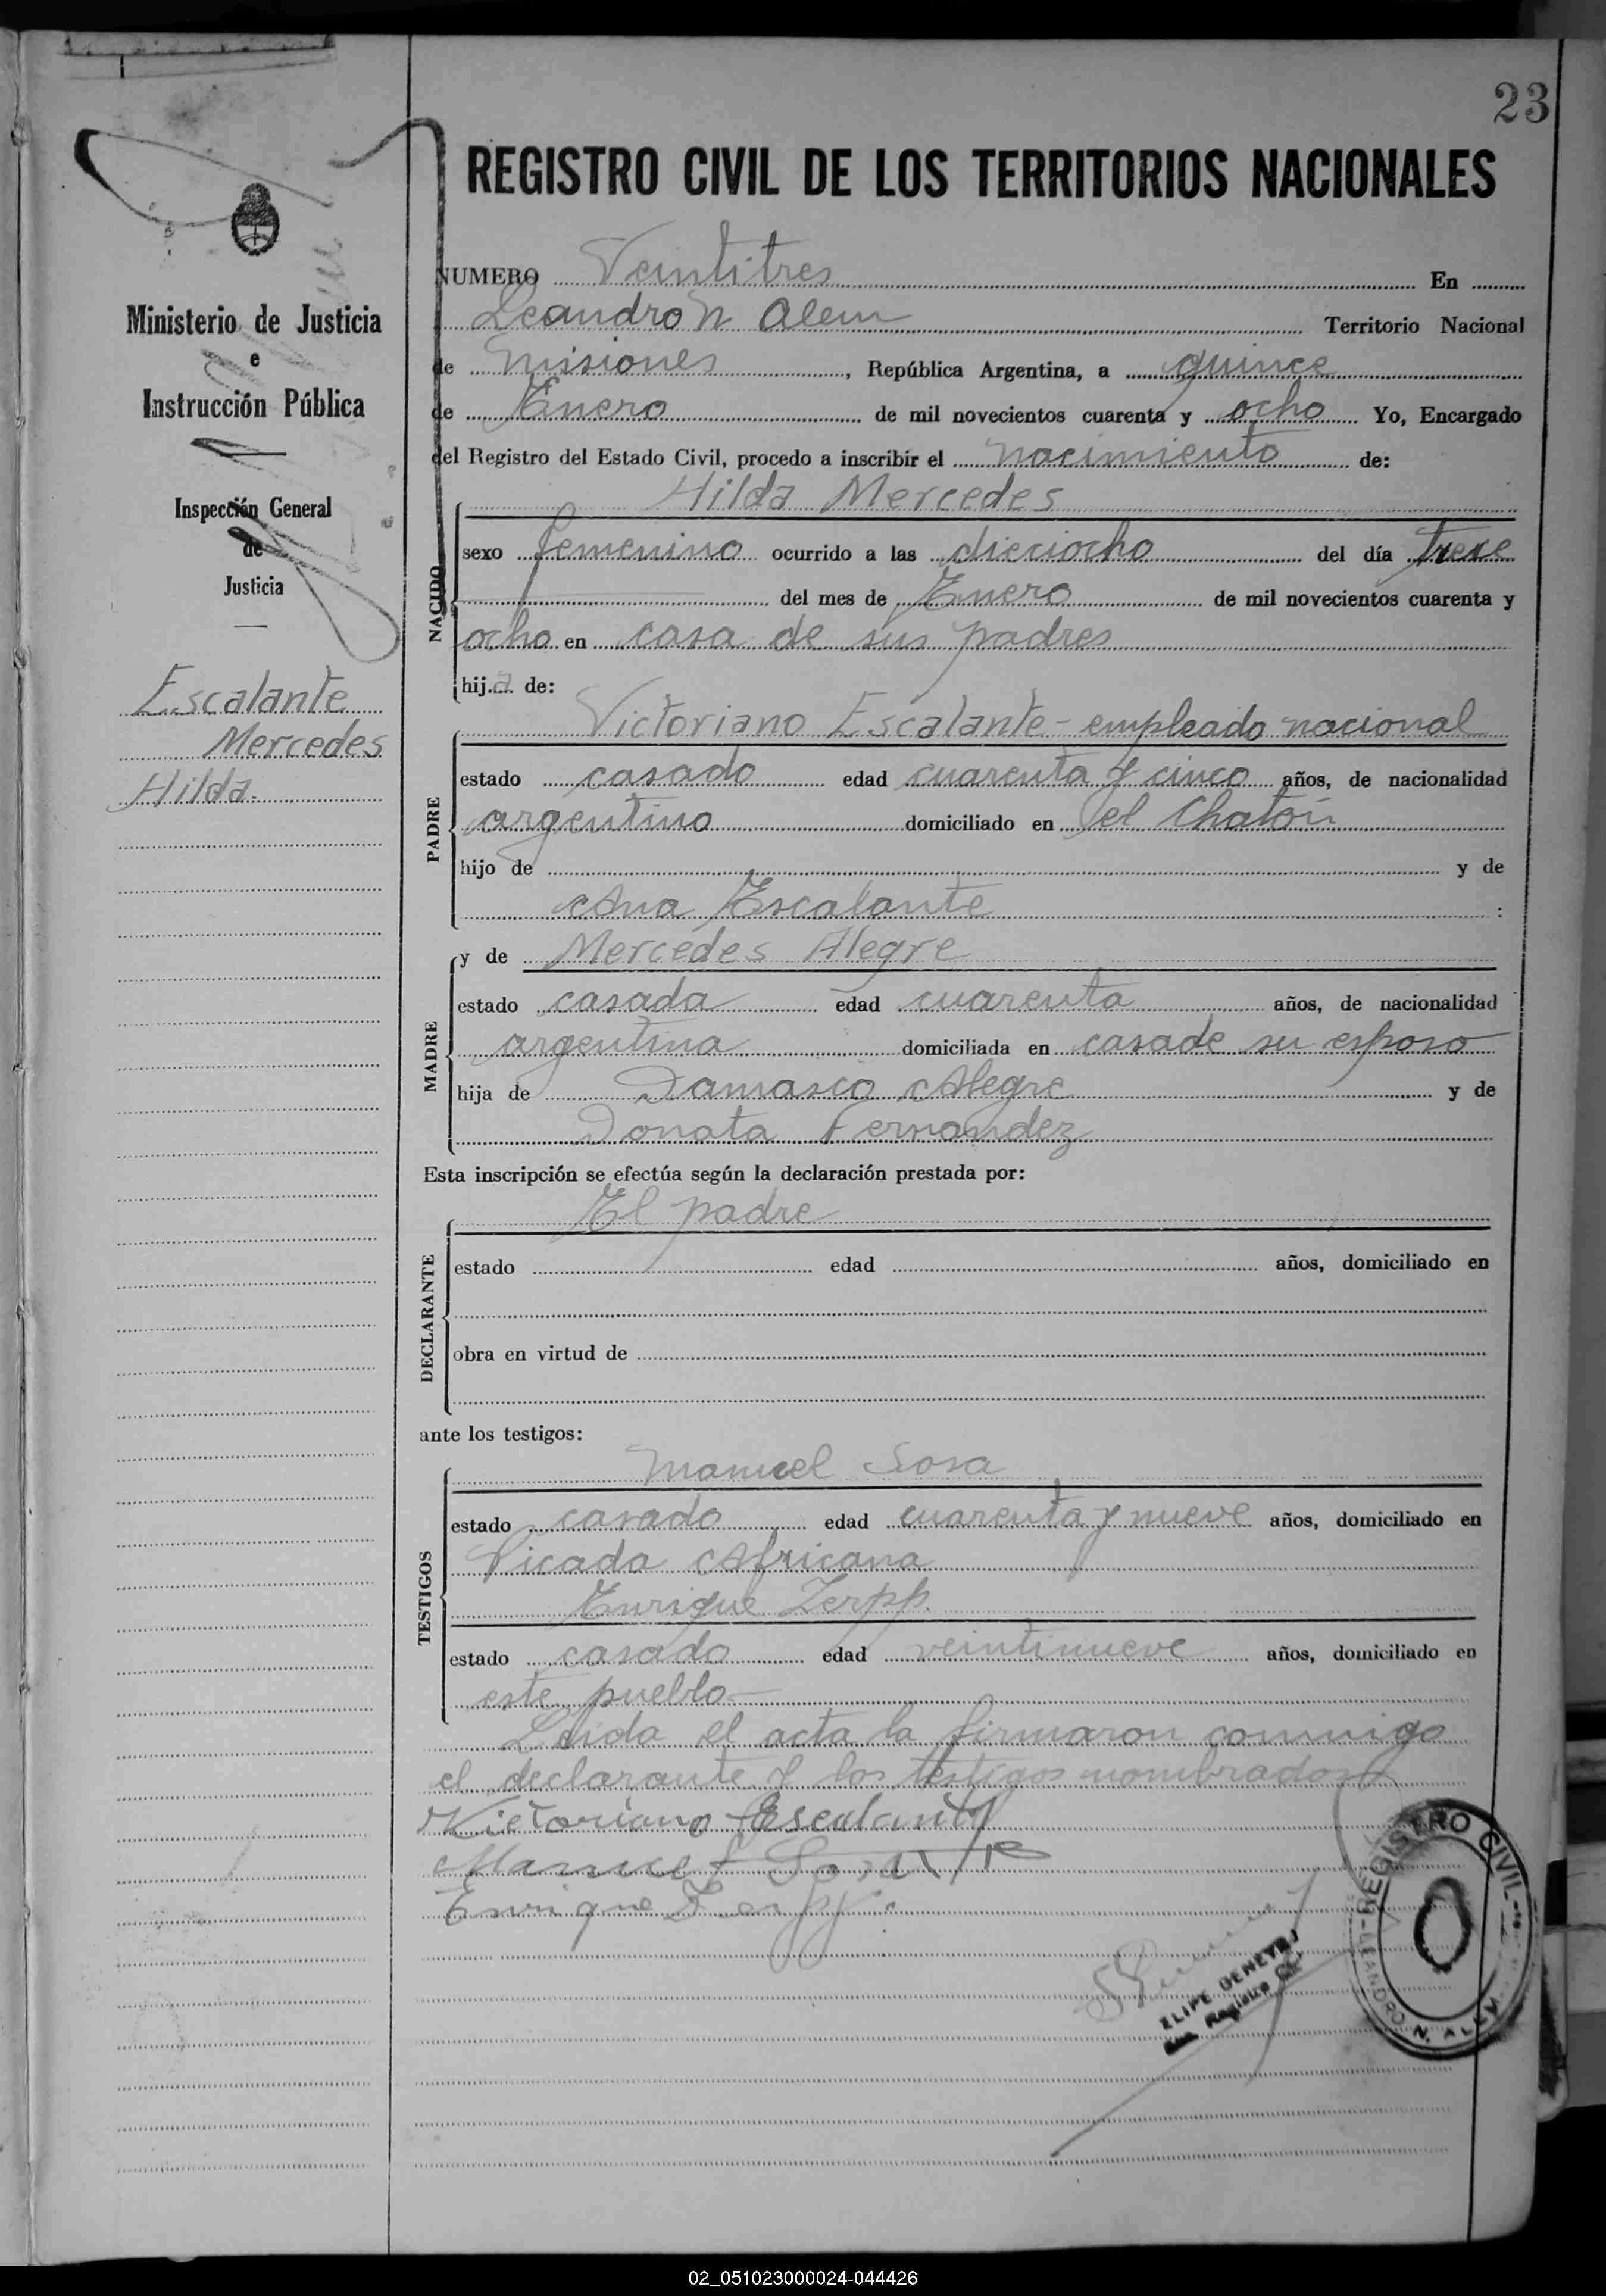 23
REGISTRO CIVIL DE LOS TERRITORIOS NACIONALES
Ministerio de Justicia
e
Instrucción Pública
Inspección General
de
Justicia
Escalante
Mercedes
Hilda.
NUMERO Veintitres En
Leandro N Alem Territorio Nacional
de Misiones, República Argentina, a quince
de Enero de mil novecientos cuarenta y ocho Yo, Encargado
del Registro del Estado Civil, procedo a inscribir el nacimiento de:
NACIDO
Hilda Mercedes
sexo femenino ocurrido a las dieciocho del día trece
del mes de Enero de mil novecientos cuarenta y
ocho en casa de sus padres
hija de:
PADRE
Victoriano Escalante - empleado nacional
estado casado edad cuarenta y cinco años, de nacionalidad
argentino domiciliado en el Chatón
hijo de y de
Ana Escalante :
MADRE
y de Mercedes Alegre
estado casada edad cuarenta años, de nacionalidad
argentina domiciliada en casa de su esposo
hija de Damasco Alegre y de
Donata Fernandez
Esta inscripción se efectúa según la declaración prestada por:
DECLARANTE
El padre
estado edad años, domiciliado en
obra en virtud de
ante los testigos:
TESTIGOS
Manuel Sosa
estado casado edad cuarenta y nueve años, domiciliado en
Picada Africana
Enrique Zerpp.
estado casado edad veintinueve años, domiciliado en
este pueblo -
Leida el acta la firmaron conmigo
el declarante y los testigos nombrados
Victoriano Escalante
Manuel Sosa
Enrique Zerpp
REGISTRO CIVIL
LEANDRO N. ALEM
02_051023000024-044426